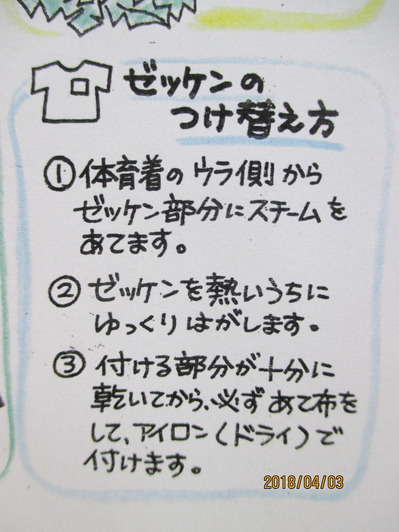 ゼッケンの
つけ替え方
① 体育着のウラ側から
ゼッケン部分にスチームを
あてます。
② ゼッケンを熱いうちに
ゆっくりはがします。
③ 付ける部分が十分に
乾いてから、必ずあて布を
して、アイロン(ドライ)で
付けます。
2018/04/03